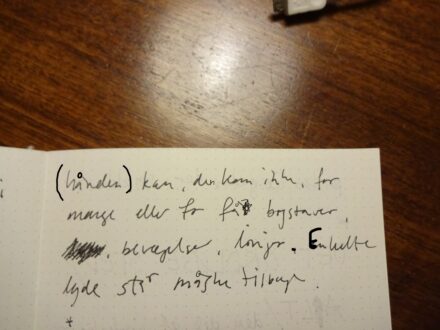 (hånden) kan, den kan ikke, for
mange eller for få bogstaver,
bevægelser, linjer. Enkelte
lyde står måske tilbage.
*